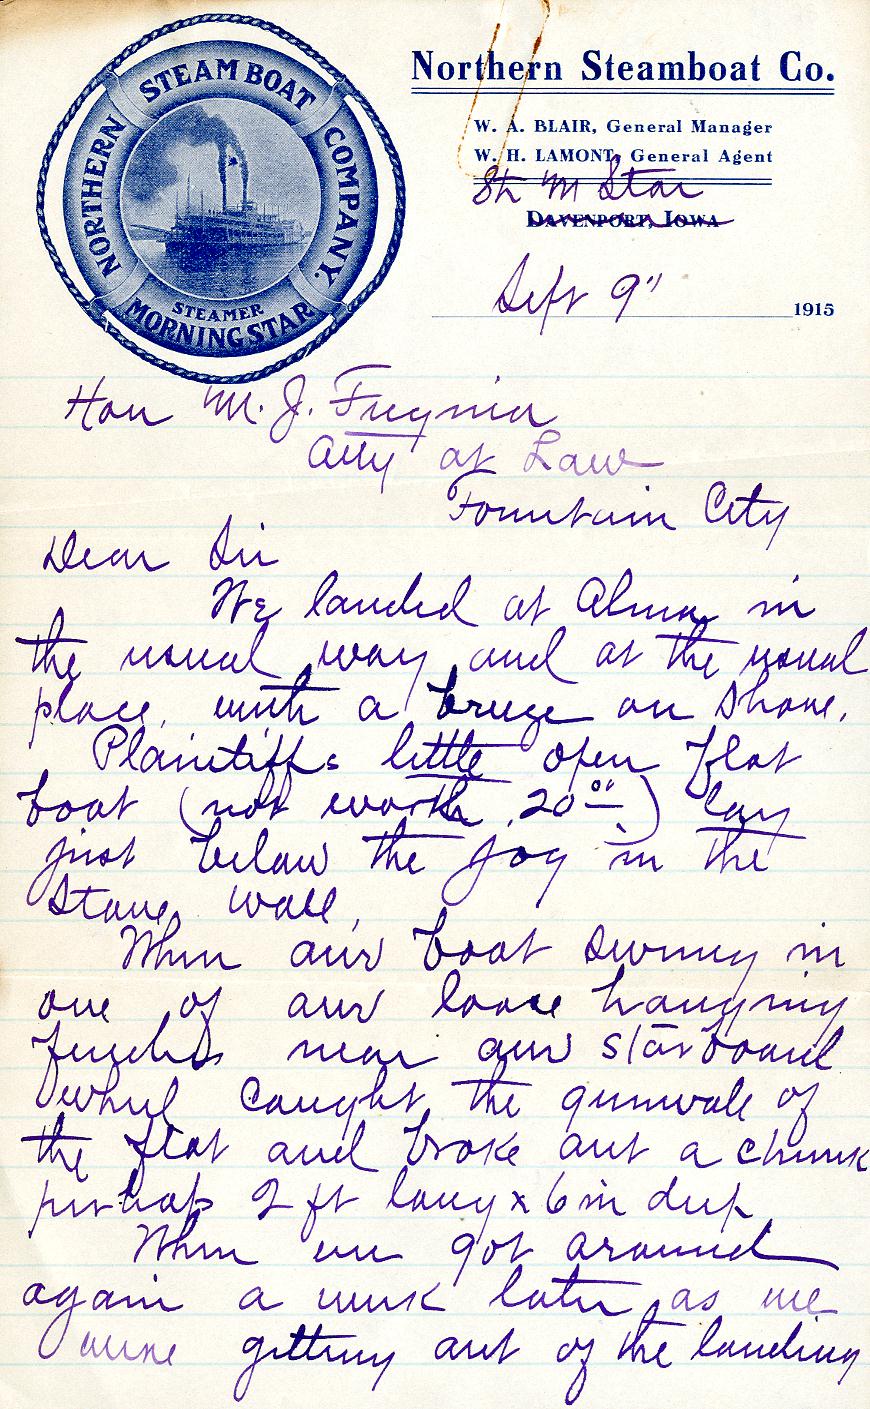 NORTHERN STEAM BOAT COMPANY.
STEAMER
MORNING STAR
Northern Steamboat Co.
W. A. BLAIR, General Manager
W. H. LAMONT, General Agent
Str M Star
DAVENPORT, IOWA
Sept 9" 1915
Hon M. J.
Atty at Law
Fountain City
Dear Sir
We landed at Alma in
the usual way and at the usual
place, with a breeze on shore.
Plaintiffs little open flat
boat (not worth 20°°) lay
just below the jog in the
Stone wall,
When our boat swung in
one of our loose hanging
fenders near our starboard
wheel caught the gunwale of
the flat and broke out a chunk
perhaps 2 ft long x 6 in deep
When we got around
again a week later as we
were getting out of the landing